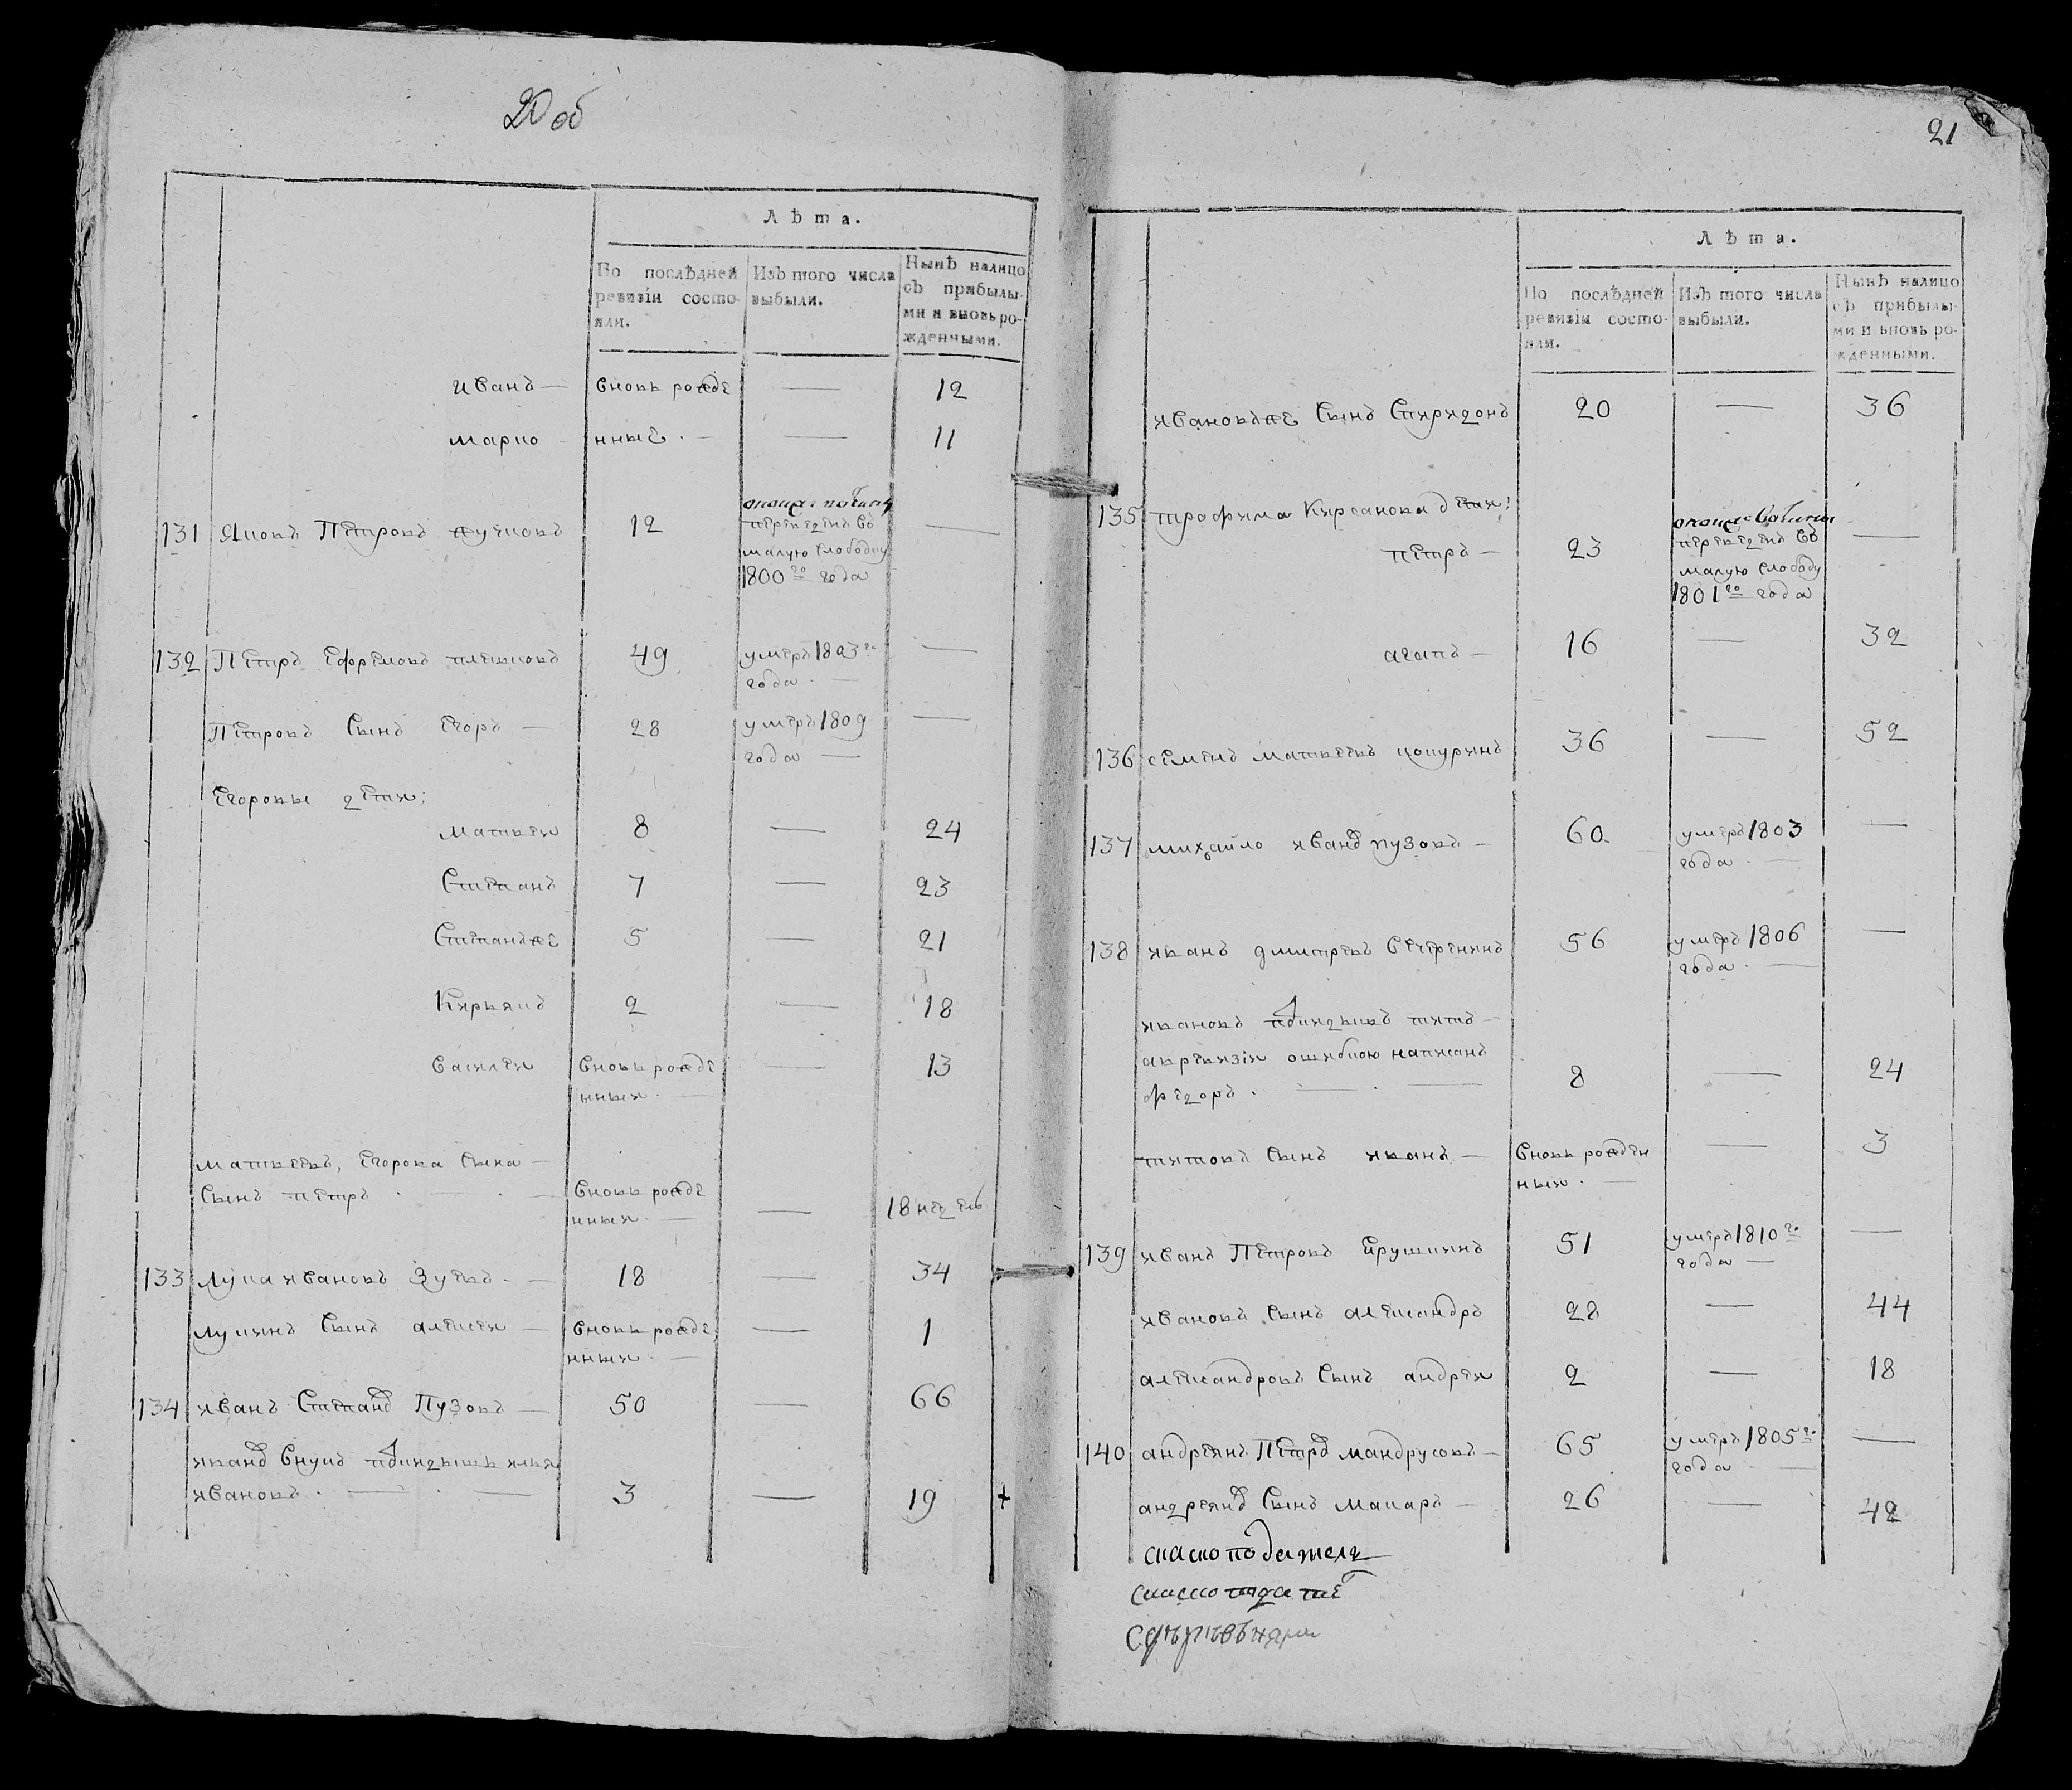 20 об
Лѣта.
По послѣдней ревизіи состо-
яли.
Изъ того числа
выбыли.
Нынѣ налицо
съ прибылы-
ми и вновь ро-
жденными.
иванъ — вновь рожде — 12
марко нные. — — 11
131 Яковъ Петровъ 12 —
переведенъ въ
малую слободку
1800го года
132 Петръ ефремовъ плешковъ 49 умеръ 1803го —
года. —
Петровъ Сынъ Егоръ — 28 умеръ 1809 —
года —
Егоровы дети;
матвеи 8 — 24
Степанъ 7 — 23
Степанъже 5 — 21
Кирьякъ 2 — 18
василеи вновь рожде — 13
нныи. —
матвеевъ, Егорова сына —
сынъ петръ. — вновь рожде
нныи. — — 18 недель
133 лука ивановъ Зуевъ. — 18 — 34
лукинъ сынъ алексеи — вновь рожде — 1
нныи. —
134 иванъ Степановъ Пузовъ — 50 — 66
ивановъ внукъ подкидышъ илья
ивановъ. — . — 3 — 19 +
21
Лѣта.
По послѣдней
ревизіи состо-
яли.
Изъ того числа
выбыли.
Нынѣ налицо
съ прибылы-
ми и вновь ро-
жденными.
ивановъже Сынъ Спиридонъ 20 — 36
135 трофима Кирсанова дети:
петръ — 23 —
переведенъ въ
малую слободу
1801го года
агапъ — 16 — 32
136 семенъ матвеевъ кокуринъ 36 — 52
137 михайло ивановъ пузовъ — 60 умеръ 1803 —
года. —
138 иванъ дмитревъ вечеренинъ 56 умеръ 1806 —
года. —
ивановъ подкидышъ титъ —
авревизіи ошибкою написанъ
федоръ. — . — 8 — 24
титовъ сынъ иванъ — вновь рожден — 3
ныи. —
139 иванъ Петровъ Ерушкинъ 51 умеръ 1810го —
года —
ивановъ сынъ александръ 28 — 44
александровъ сынъ андреи 2 — 18
140 андреянъ Петровъ мандрусовъ — 65 умеръ 1805го —
года —
андреяновъ сынъ макаръ — 26 — 42